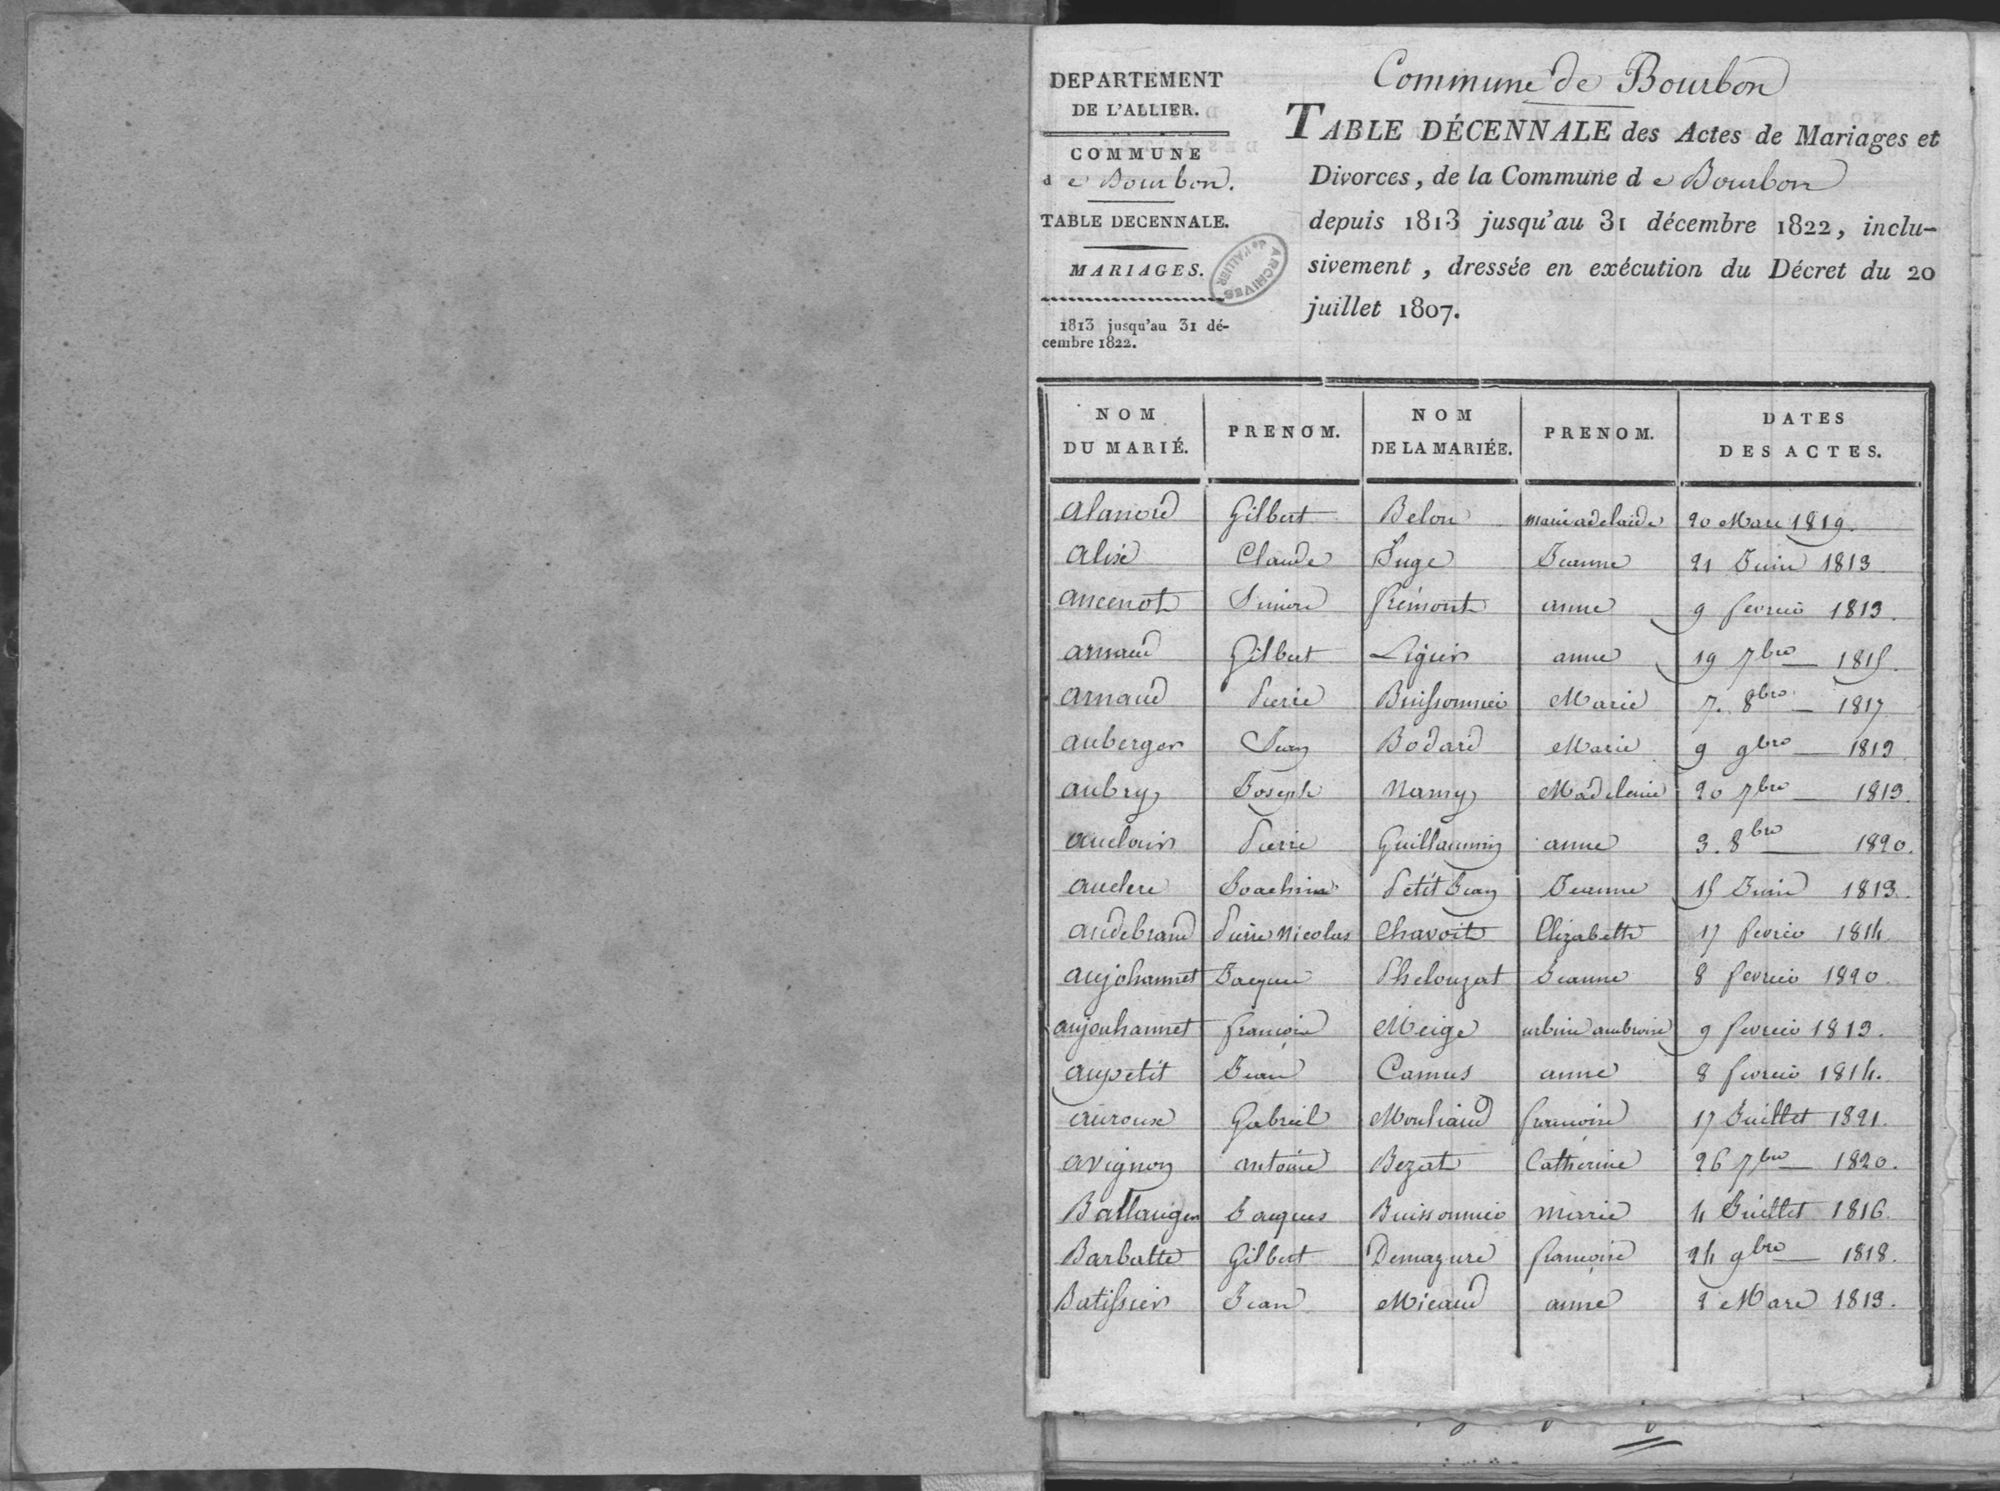 DEPARTEMENT
DE L'ALLIER.
COMMUNE
de Bourbon.
TABLE DECENNALE.
MARIAGES.
1813 jusqu'au 31 dé-
cembre 1822.
ARCHIVES
de l'ALLIER
Commune de Bourbon
TABLE DÉCENNALE des Actes de Mariages et
Divorces, de la Commune de Bourbon
depuis 1813 jusqu'au 31 décembre 1822, inclu-
sivement, dressée en exécution du Décret du 20
juillet 1807.
NOM DU MARIÉ. PRENOM. NOM DE LA MARIÉE. PRENOM. DATES DES ACTES.
Gilbert Belon marie adelaide 20 Mars 1819.
alix Claude Juge Jeanne 21 Juin 1813
ancenot Simon fremont anne 9 fevrier 1813.
arnaud Gilbert Liger anne 19 7bre 1815.
arnaud Pierre Buissonnier Marie 7. 8bre 1817
auberger Jean Bodard Marie 9 9bre 1813
aubry Joseph Namy Madelaine 20 7bre 1813.
audouin Pierre Guillaumin anne 3. 8bre 1820.
auclere Joachim Petit Jean Jeanne 15 Juin 1813.
audebrand Pierre Nicolas Chavoit Elizabeth 17 fevrier 1814
aujohannet Jacques Phelouzat Jeanne 8 fevrier 1820.
aujouhannet françois Meige ambroise 9 fevrier 1813.
aupetit Jean Camus anne 8 fevrier 1814.
auroux Gabriel françoise 17 Juillet 1821.
avignon antoine Bezat Catherine 26 7bre 1820.
Jacques Buissonnier marie 4 Juillet 1816
Barbatte Gilbert Demazure françoise 24 9bre 1818.
Batissier Jean Micaud anne 2 Mars 1813.